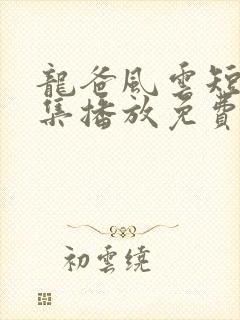 龍爸風雲短
集播放免費
初雲繞